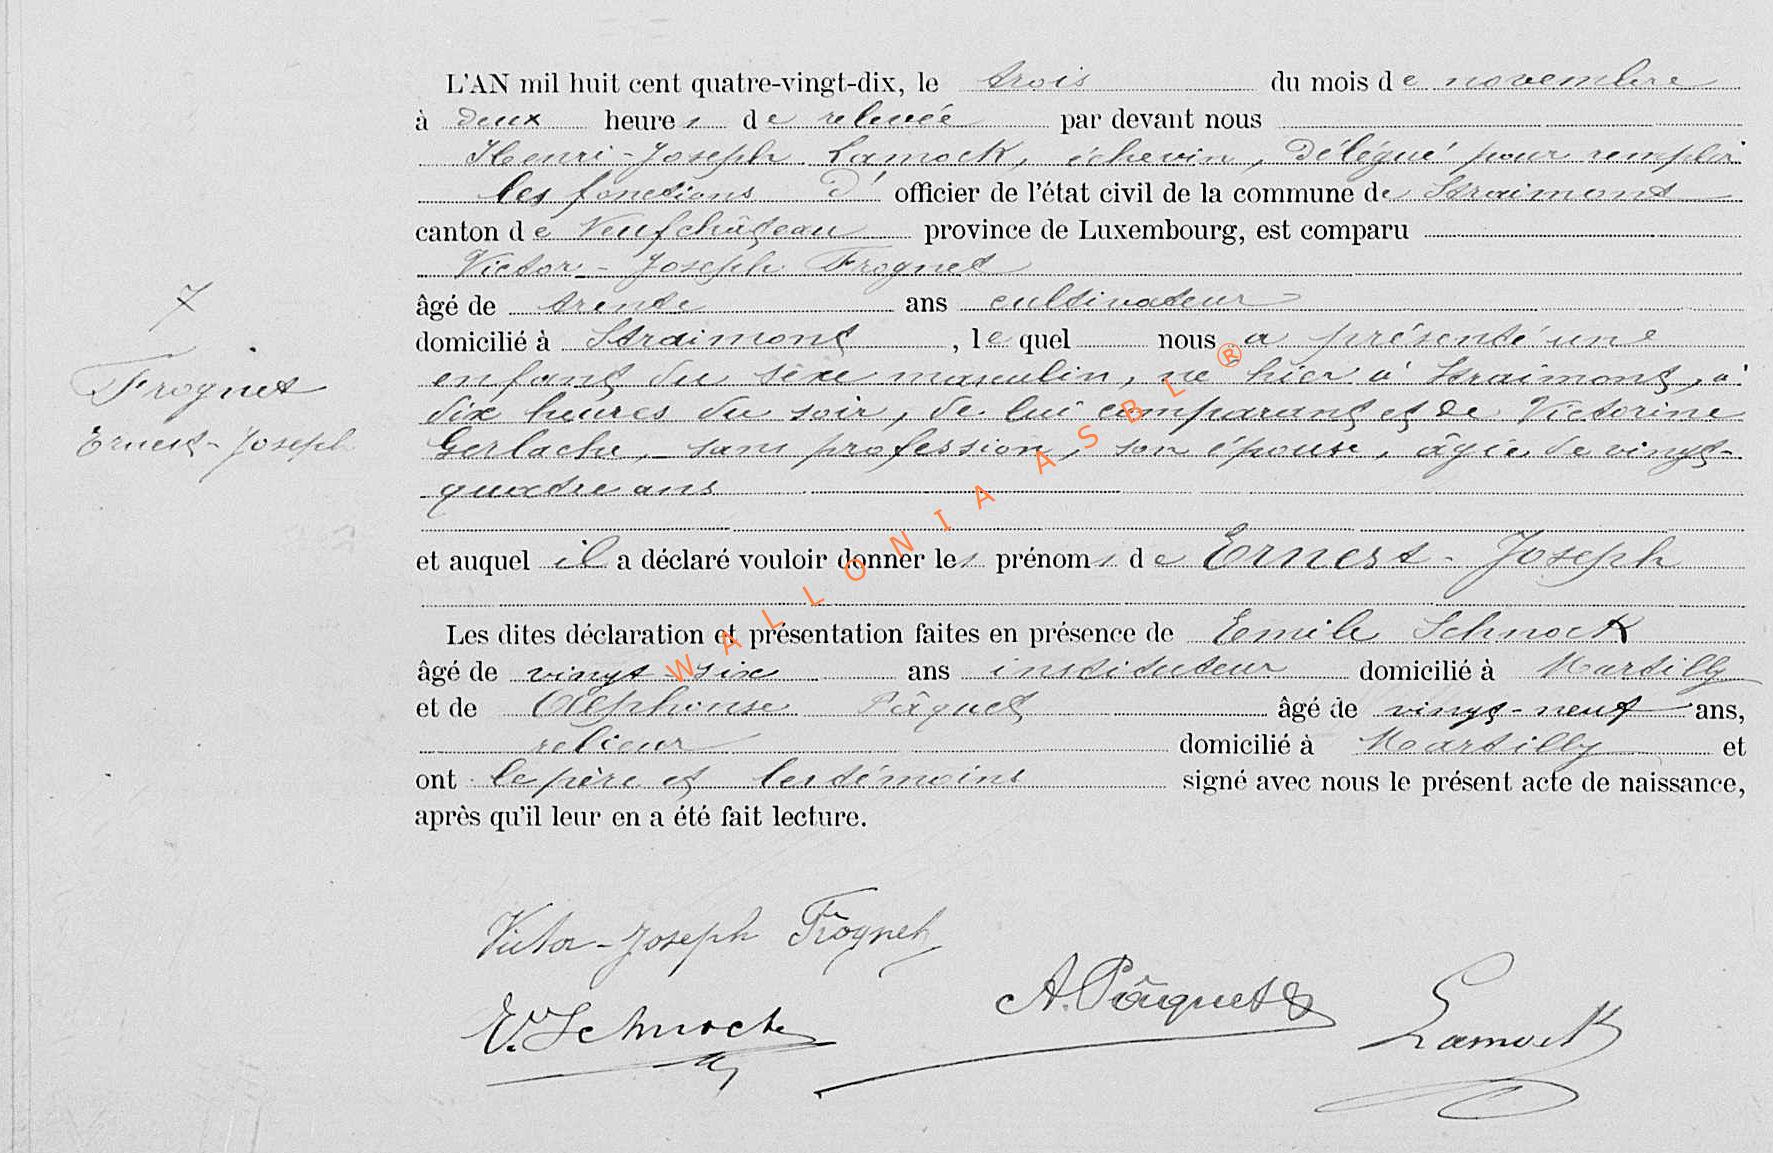 L'AN mil huit cent quatre-vingt-dix, le trois du mois de novembre
à deux heures de relevée par devant nous
Henri-Joseph Lamock, échevin, délégué pour remplir
les fonctions d'officier de l'état civil de la commune de Straimont
canton de Neufchâteau province de Luxembourg, est comparu
Victor-Joseph Frognet
âgé de trente ans cultivateur
domicilié à Straimont, lequel nous a présenté un
enfant du sexe masculin, né hier à Straimont, à
dix heures du soir, de lui comparant et de Victorine
Gerlache, sans profession, son épouse, âgée de vingt-
quatre ans
et auquel il a déclaré vouloir donner les prénoms de Ernest-Joseph
Les dites déclaration et présentation faites en présence de Emile Schnock
âgé de vingt-six ans instituteur domicilié à Martilly
et de Alphonse Pâquet âgé de vingt-neuf ans,
relieur domicilié à Martilly et
ont le père et les témoins signé avec nous le présent acte de naissance,
après qu'il leur en a été fait lecture.
7
Frognet
Ernest-Joseph
Victor-Joseph Frognet
E. Schnock
A. Pâquet
Lamock
WALLONIA ASBL ®